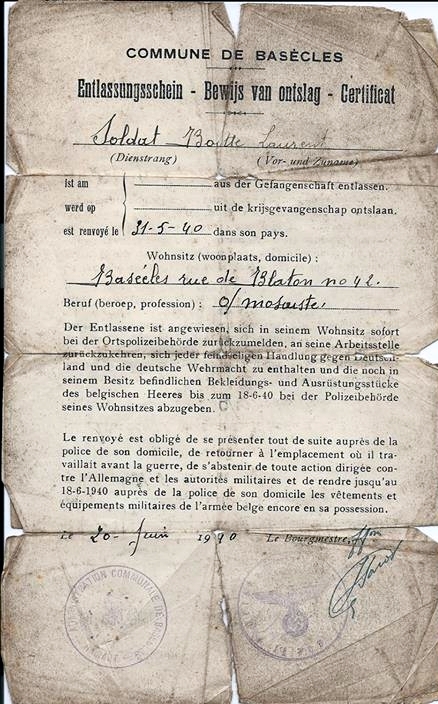 COMMUNE DE BASÈCLES
Entlassungsschein - Bewijs van ontslag - Certificat
Soldat Boitte Laurent
(Dienstrang) (Vor- und Zuname)
ist am aus der Gefangenschaft entlassen.
werd op uit de krijsgevangenschap ontslaan.
est renvoyé le 31-5-40 dans son pays.
Wohnsitz (woonplaats, domicile) :
Basècles rue de Blaton no 42.
Beruf (beroep, profession) :
Der Entlassene ist angewiesen, sich in seinem Wohnsitz sofort
bei der Ortspolizeibehörde zurückzumelden, an seine Arbeitsstelle
zurückzukehren, sich jeder feindseligen Handlung gegen Deutsch-
land und die deutsche Wehrmacht zu enthalten und die noch in
seinem Besitz befindlichen Bekleidungs- und Ausrüstungsstücke
des belgischen Heeres bis zum 18-6-40 bei der Polizeibehörde
seines Wohnsitzes abzugeben.
Le renvoyé est obligé de se présenter tout de suite auprès de la
police de son domicile, de retourner à l'emplacement où il tra-
vaillait avant la guerre, de s'abstenir de toute action dirigée con-
tre l'Allemagne et les autorités militaires et de rendre jusqu'au
18-6-1940 auprès de la police de son domicile les vêtements et
équipements militaires de l'armée belge encore en sa possession.
Le 20 Juin 1940 Le Bourgmestre,
ADMINISTRATION COMMUNALE DE